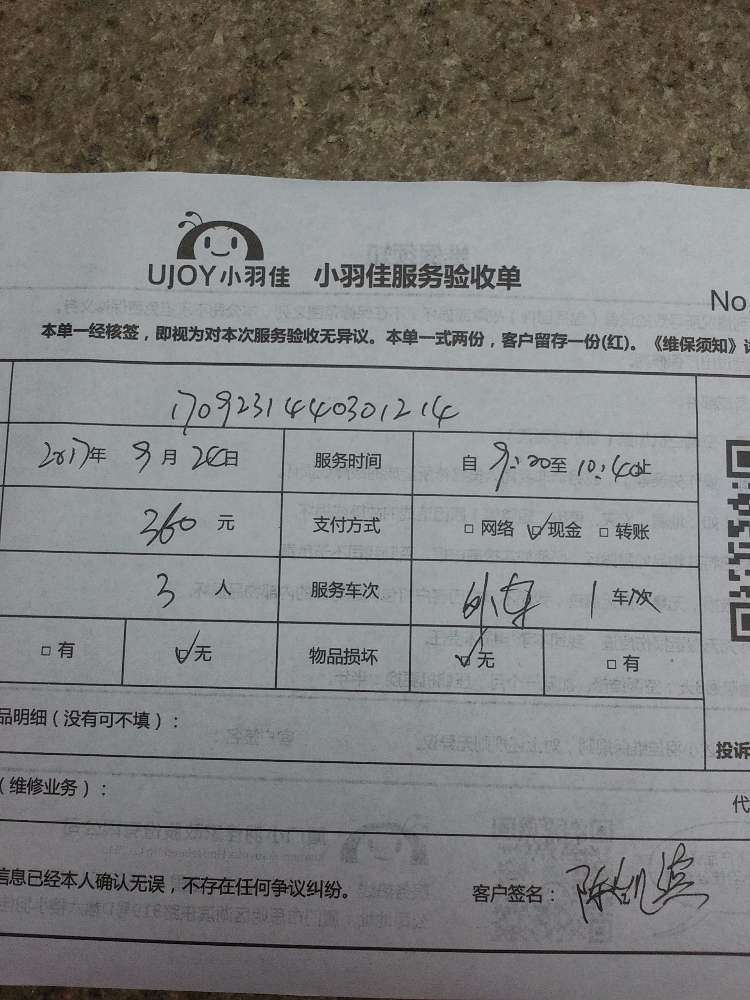 UJOY小羽佳 小羽佳服务验收单
No
本单一经核签，即视为对本次服务验收无异议。本单一式两份，客户留存一份(红)。《维保须知》
1709231440301214
2017年 9月 24日 服务时间 自 9:20至 10:40止
360 元 支付方式 □ 网络 ☑ 现金 □ 转账
3 人 服务车次 外车 1 车/次
□ 有 ☑ 无 物品损坏 ☑ 无 □ 有
品明细（没有可不填）：
投诉
（维修业务）：
代
信息已经本人确认无误，不存在任何争议纠纷。 客户签名：